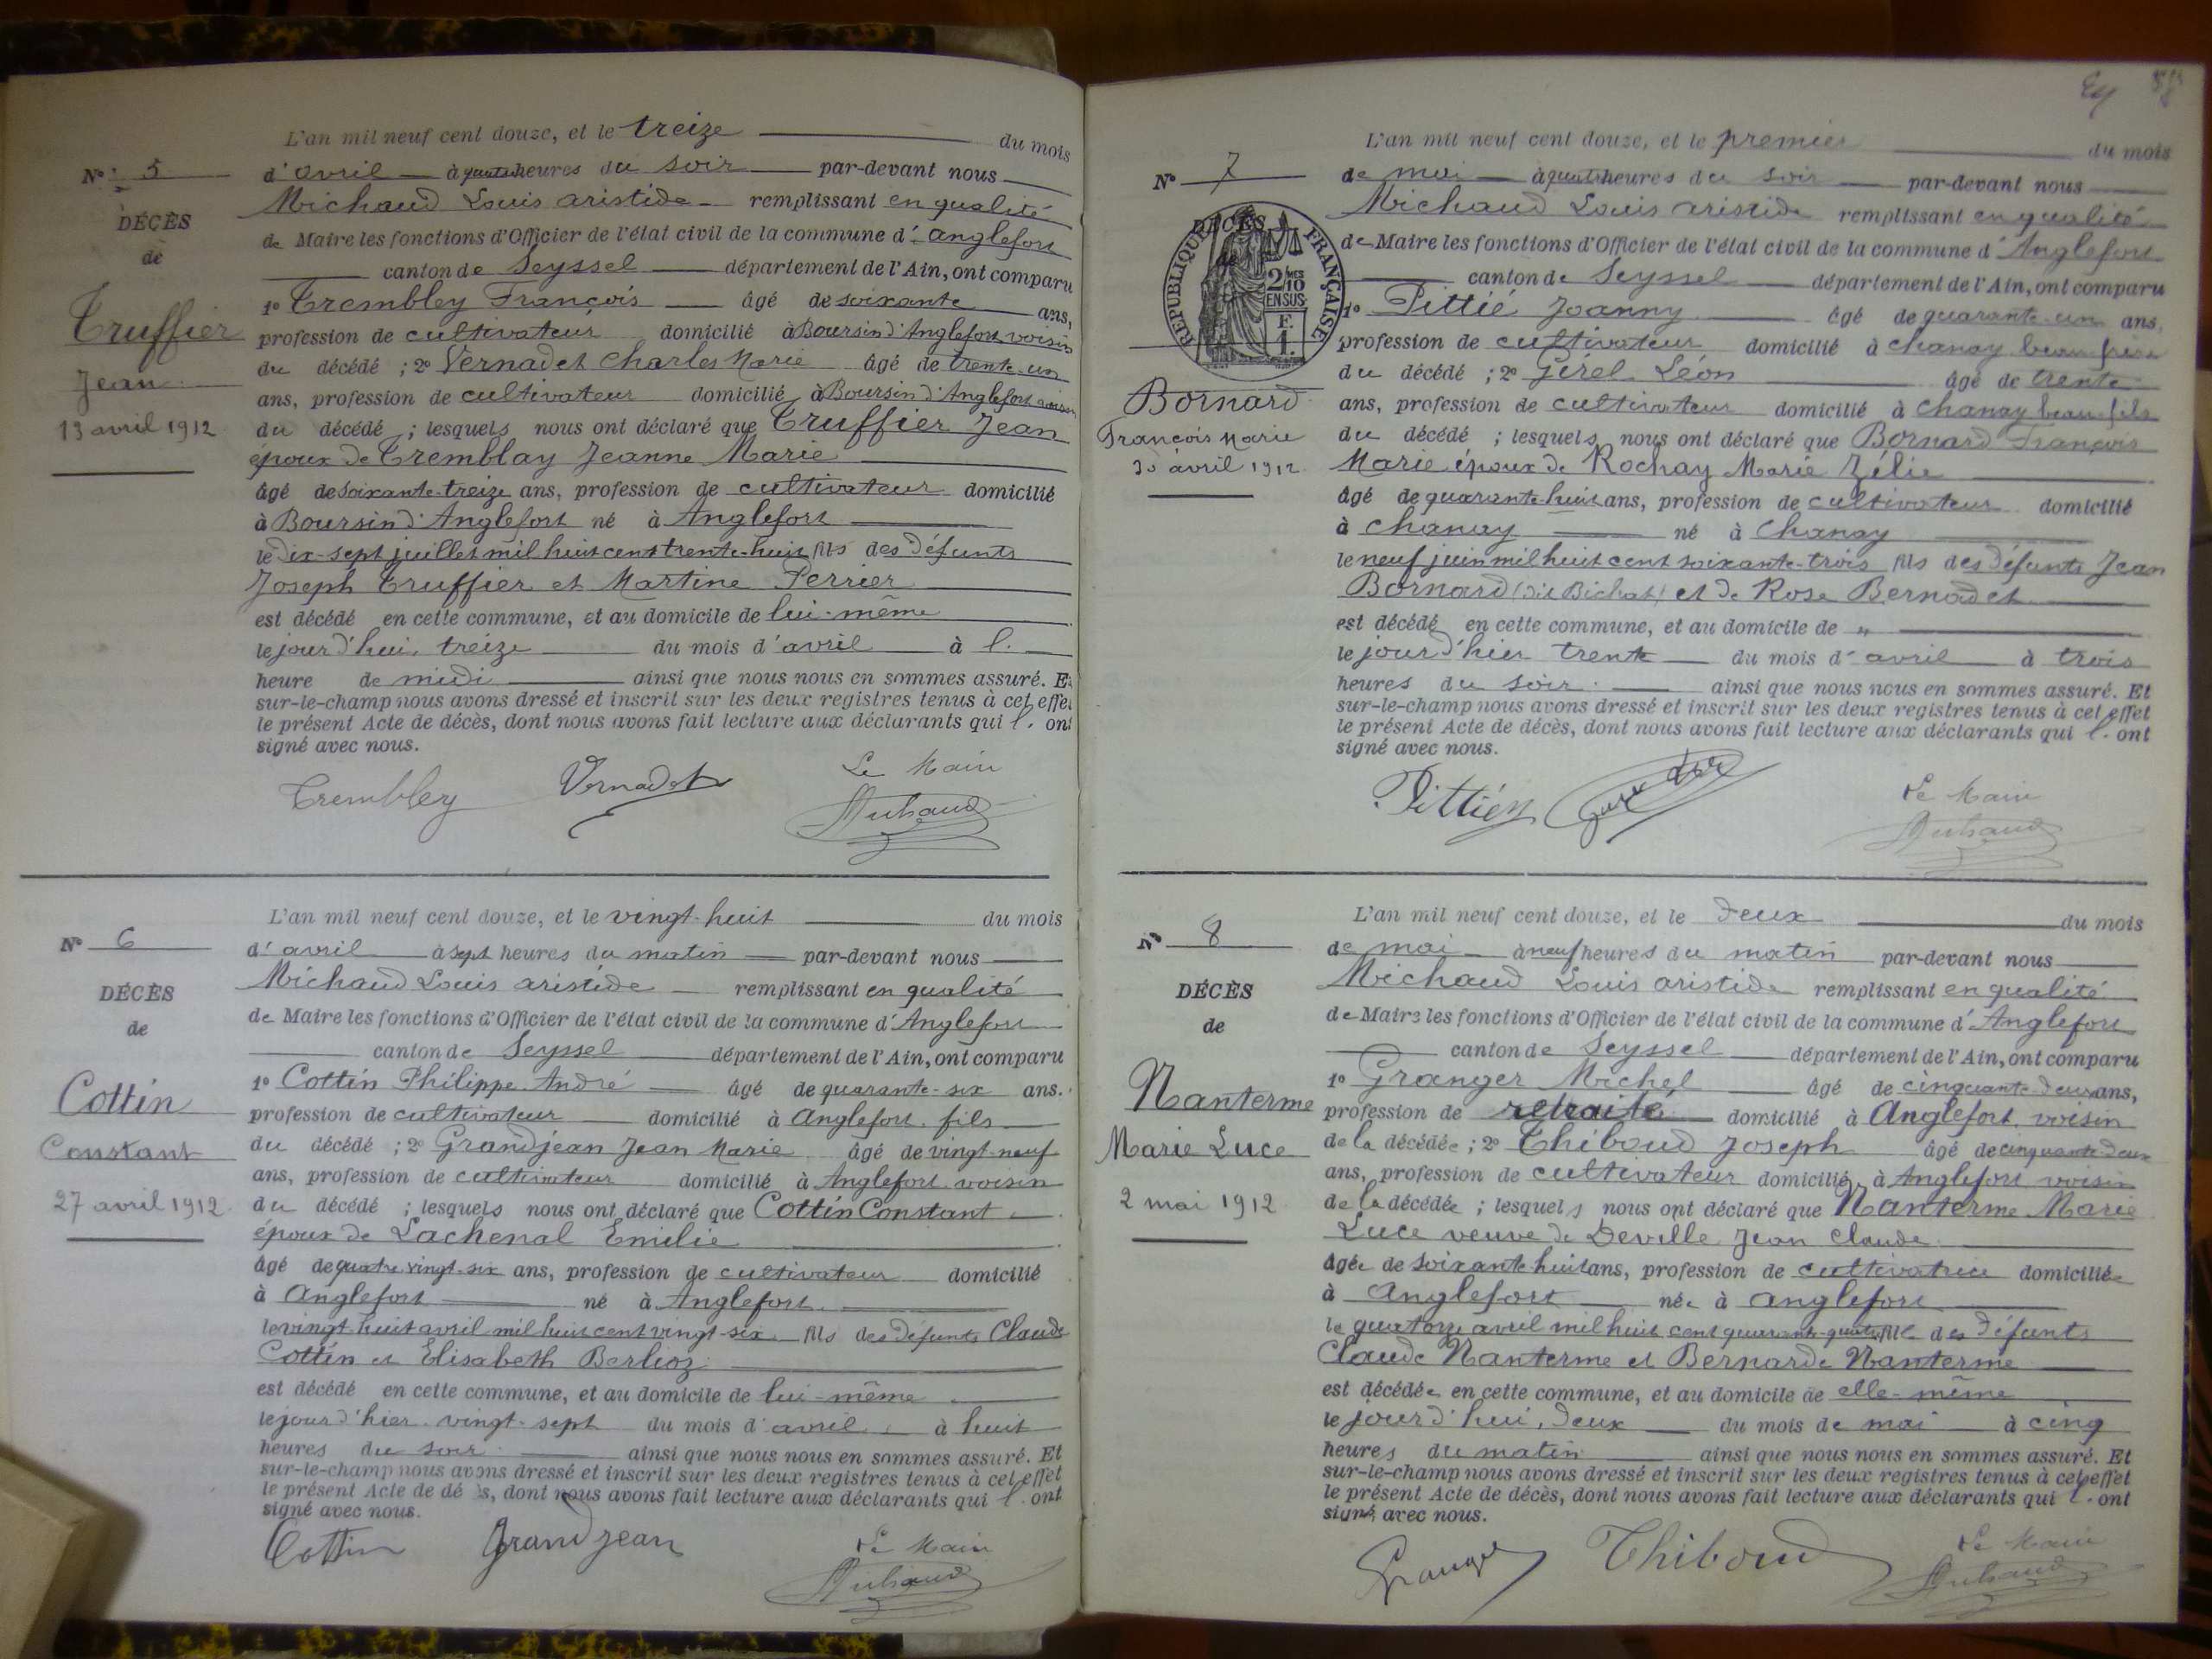 L'an mil neuf cent douze, et le treize du mois
N° 5 d'avril à quatre heures du soir par-devant nous
Michaud Louis aristide remplissant en qualité
DÉCÈS
de Maire les fonctions d'Officier de l'état civil de la commune d'anglefort
de
canton de Seyssel département de l'Ain, ont comparu
1° Trembley François âgé de soixante ans,
Truffier
profession de cultivateur domicilié à Boursin d'Anglefort voisin
du décédé ; 2° Vernadet Charles Marie âgé de trente-un
Jean
ans, profession de cultivateur domicilié à Boursin d'Anglefort voisin
13 avril 1912
du décédé ; lesquels nous ont déclaré que Truffier Jean
époux de Tremblay Jeanne Marie
âgé de soixante-treize ans, profession de cultivateur domicilié
à Boursin d'Anglefort né à Anglefort
le dix-sept juillet mil huit cent trente-huit fils des défunts
Joseph Truffier et Martine Perrier
est décédé en cette commune, et au domicile de lui-même
le jour d'hui, treize du mois d'avril à l.
heure de midi ainsi que nous nous en sommes assuré. Et
sur-le-champ nous avons dressé et inscrit sur les deux registres tenus à cet effet
le présent Acte de décès, dont nous avons fait lecture aux déclarants qui l. ont
signé avec nous.
Trembley Vernadet Le Maire
Michaud
L'an mil neuf cent douze, et le vingt-huit du mois
N° 6 d'avril à sept heures du matin par-devant nous
Michaud Louis aristide remplissant en qualité
DÉCÈS
de Maire les fonctions d'Officier de l'état civil de la commune d'Anglefort
de
canton de Seyssel département de l'Ain, ont comparu
1° Cottin Philippe André âgé de quarante-six ans.
Cottin
profession de cultivateur domicilié à Anglefort. fils
du décédé ; 2° Grandjean Jean Marie âgé de vingt-neuf
Constant
ans, profession de cultivateur domicilié à Anglefort voisin
27 avril 1912
du décédé ; lesquels nous ont déclaré que Cottin Constant
époux de Lachenal Emilie
âgé de quatre vingt-six ans, profession de cultivateur domicilié
à Anglefort né à Anglefort.
le vingt-huit avril mil huit cent vingt-six fils des défunts Claude
Cottin et Elisabeth Berlioz
est décédé en cette commune, et au domicile de lui-même
le jour d'hier vingt-sept du mois d'avril à huit
heures du soir ainsi que nous nous en sommes assuré. Et
sur-le-champ nous avons dressé et inscrit sur les deux registres tenus à cet effet
le présent Acte de dé s, dont nous avons fait lecture aux déclarants qui l. ont
signé avec nous.
Cottin Grandjean Le Maire
Michaud
L'an mil neuf cent douze, et le premier du mois
N° 7 de mai à quatre heures du soir par-devant nous
Michaud Louis aristide remplissant en qualité
DÉCÈS
RÉPUBLIQUE FRANÇAISE
2/10 MES
EN SUS
F.
1.
de Maire les fonctions d'Officier de l'état civil de la commune d'Anglefort
canton de Seyssel département de l'Ain, ont comparu
1° Pittié Joanny âgé de quarante-un ans,
profession de cultivateur domicilié à chanay beau frère
du décédé ; 2° Gérel Léon âgé de trente
Bornard
ans, profession de cultivateur domicilié à chanay beau-fils
François Marie
du décédé ; lesquels nous ont déclaré que Bornard François
30 avril 1912
Marie époux de Rochay Marie Zélie
âgé de quarante-huit ans, profession de cultivateur domicilié
à chanay né à Chanay
le neuf juin mil huit cent soixante-trois fils des défunts Jean
Bornard (dit Bichat) et de Rose Bernadet
est décédé en cette commune, et au domicile de "
le jour d'hier trente du mois d'avril à trois
heures du soir. ainsi que nous nous en sommes assuré. Et
sur-le-champ nous avons dressé et inscrit sur les deux registres tenus à cet effet
le présent Acte de décès, dont nous avons fait lecture aux déclarants qui l. ont
signé avec nous.
Le Maire
Michaud
L'an mil neuf cent douze, et le deux du mois
N° 8 de mai à neuf heures du matin par-devant nous
Michaud Louis aristide remplissant en qualité
DÉCÈS
de Maire les fonctions d'Officier de l'état civil de la commune d'Anglefort
de
canton de Seyssel département de l'Ain, ont comparu
1° Granger Michel âgé de cinquante-deux ans,
Nanterme
profession de retraité domicilié à Anglefort. voisin
de la décédée ; 2° Thiboud Joseph âgé de cinquante-deux
Marie Luce
ans, profession de cultivateur domicilié à Anglefort voisin
2 mai 1912
de la décédée ; lesquels nous ont déclaré que Nanterme Marie
Luce veuve de Deville Jean Claude
âgée de soixante huit ans, profession de cultivatrice domiciliée
à Anglefort née à anglefort
le quatorze avril mil huit cent quarante-quatre, fille des défunts
Claude Nanterme et Bernarde Nanterme
est décédée en cette commune, et au domicile de elle-même
le jour d'hui, deux du mois de mai à cinq
heures du matin ainsi que nous nous en sommes assuré. Et
sur-le-champ nous avons dressé et inscrit sur les deux registres tenus à cet effet
le présent Acte de décès, dont nous avons fait lecture aux déclarants qui l. ont
signé avec nous.
Granger Thiboud Le Maire
Michaud